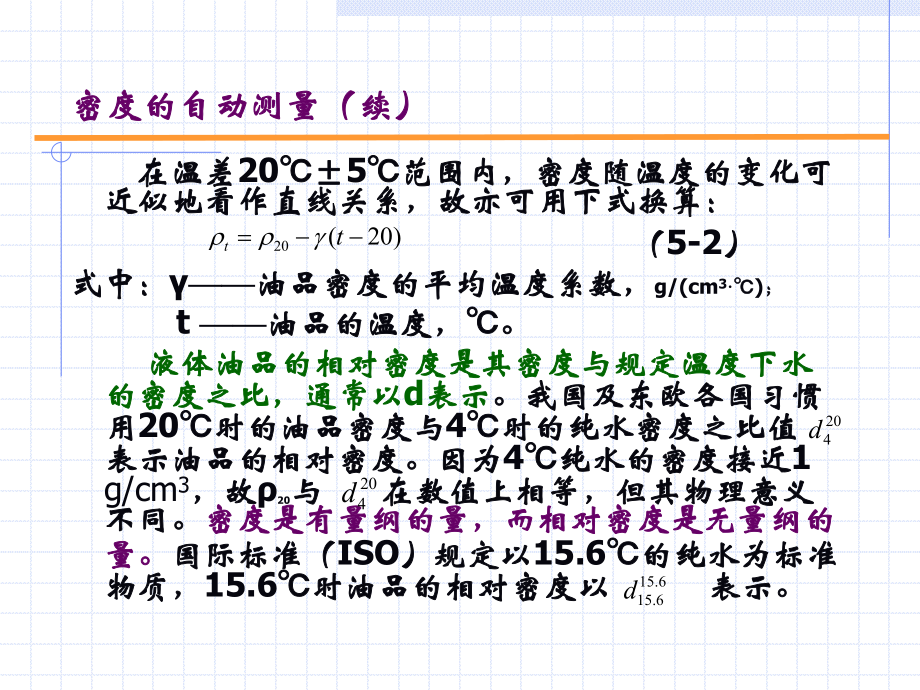 密度的自动测量（续）
在温差20℃±5℃范围内，密度随温度的变化可
近似地看作直线关系，故亦可用下式换算：
ρ_t = ρ_20 − γ(t − 20) （5-2）
式中：γ——油品密度的平均温度系数，g/(cm³·℃)；
t ——油品的温度，℃。
液体油品的相对密度是其密度与规定温度下水
的密度之比，通常以d表示。我国及东欧各国习惯
用20℃时的油品密度与4℃时的纯水密度之比值 d_4^20
表示油品的相对密度。因为4℃纯水的密度接近1
g/cm³，故ρ₂₀与 d_4^20 在数值上相等，但其物理意义
不同。密度是有量纲的量，而相对密度是无量纲的
量。国际标准（ISO）规定以15.6℃的纯水为标准
物质，15.6℃时油品的相对密度以 d_15.6^15.6 表示。